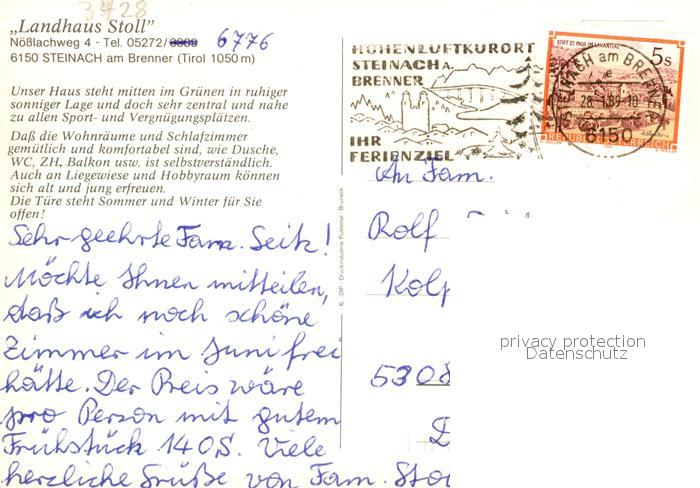 3428
„Landhaus Stoll”
Nößlachweg 4 - Tel. 05272/ 6776
6150 STEINACH am Brenner (Tirol 1050 m)
Unser Haus steht mitten im Grünen in ruhiger
sonniger Lage und doch sehr zentral und nahe
zu allen Sport- und Vergnügungsplätzen.
Daß die Wohnräume und Schlafzimmer
gemütlich und komfortabel sind, wie Dusche,
WC, ZH, Balkon usw. ist selbstverständlich.
Auch an Liegewiese und Hobbyraum können
sich alt und jung erfreuen.
Die Türe steht Sommer und Winter für Sie
offen!
Sehr geehrte Fam. Seitz!
Möchte Ihnen mitteilen,
daß ich noch schöne
Zimmer im Juni frei
hätte. Der Preis wäre
pro Person mit gutem
Frühstück 140,S. Viele
herzliche Grüße von Fam. Sto
HÖHENLUFTKURORT
STEINACH A.
BRENNER
IHR
FERIENZIEL
STIFT ST. PAUL IM LAVANTTAL
5 S
REPUBLIK ÖSTERREICH
STEINACH am BRENNER
28. 1.89-10
6150
An Fam.
Rolf
Kolp
5308
D
DP - Druckindustrie Pustertal - Bruneck
privacy protection
Datenschutz